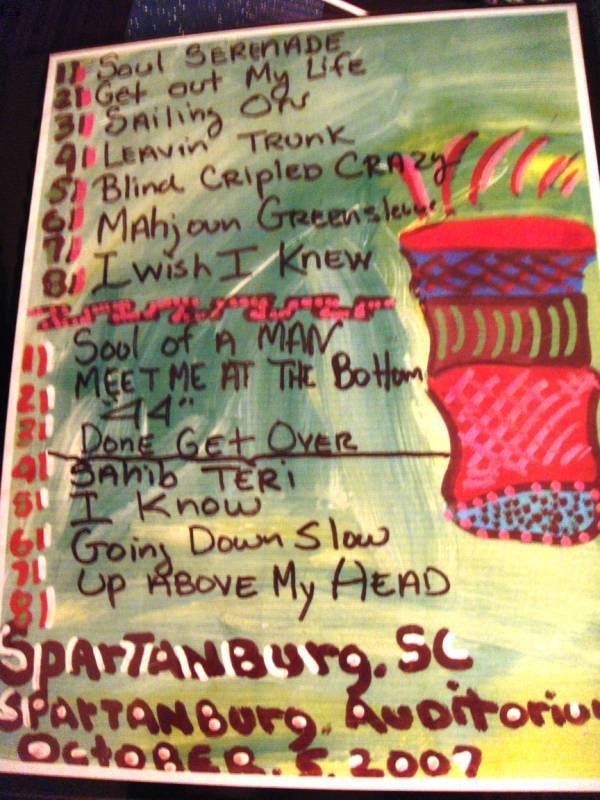 1) Soul SERENADE
2) Get out My Life
3) SAiling On
4) LEAVin' TRUNK
5) Blind CRipled CRAzy
6) MAhjoun GREENsleeves
7)
8) I wish I KNEW
1) Soul of A MAN
2) MEET ME AT THE Bottom
3) "44"
4) DONE GEt OVER
5) SAhib TERi
6) I Know
7) Going Down Slow
8) Up ABOVE My HEAD
SPArTANBurg, SC
SPArTANBurg, AuDitoriu
OctOBER. 5. 2007